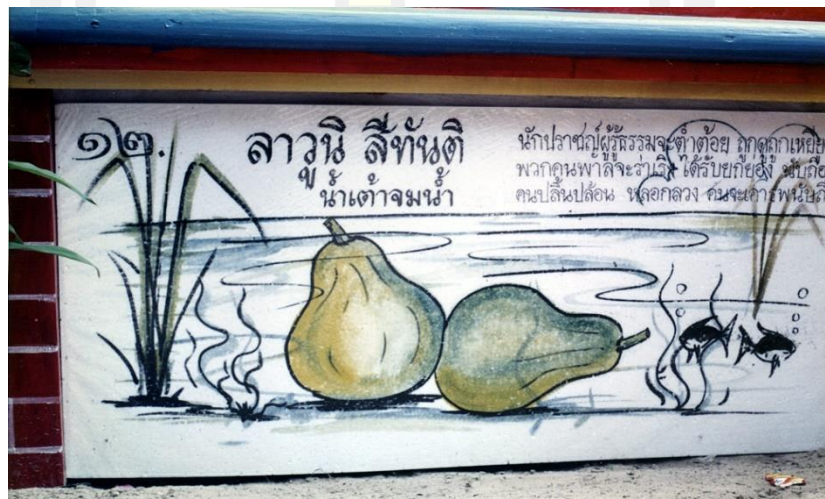 ๑๒. ลาวูนิ สีทันติ
น้ำเต้าจมน้ำ
นักปราชญ์ผู้รู้ธรรมจะต่ำต้อย ถูกดูถูกเหยีย
พวกคนพาลจะร่าเริง ได้รับยกย่อง นับถือ
คนปลิ้นปล้อน หลอกลวง คนจะเคารพนับถื